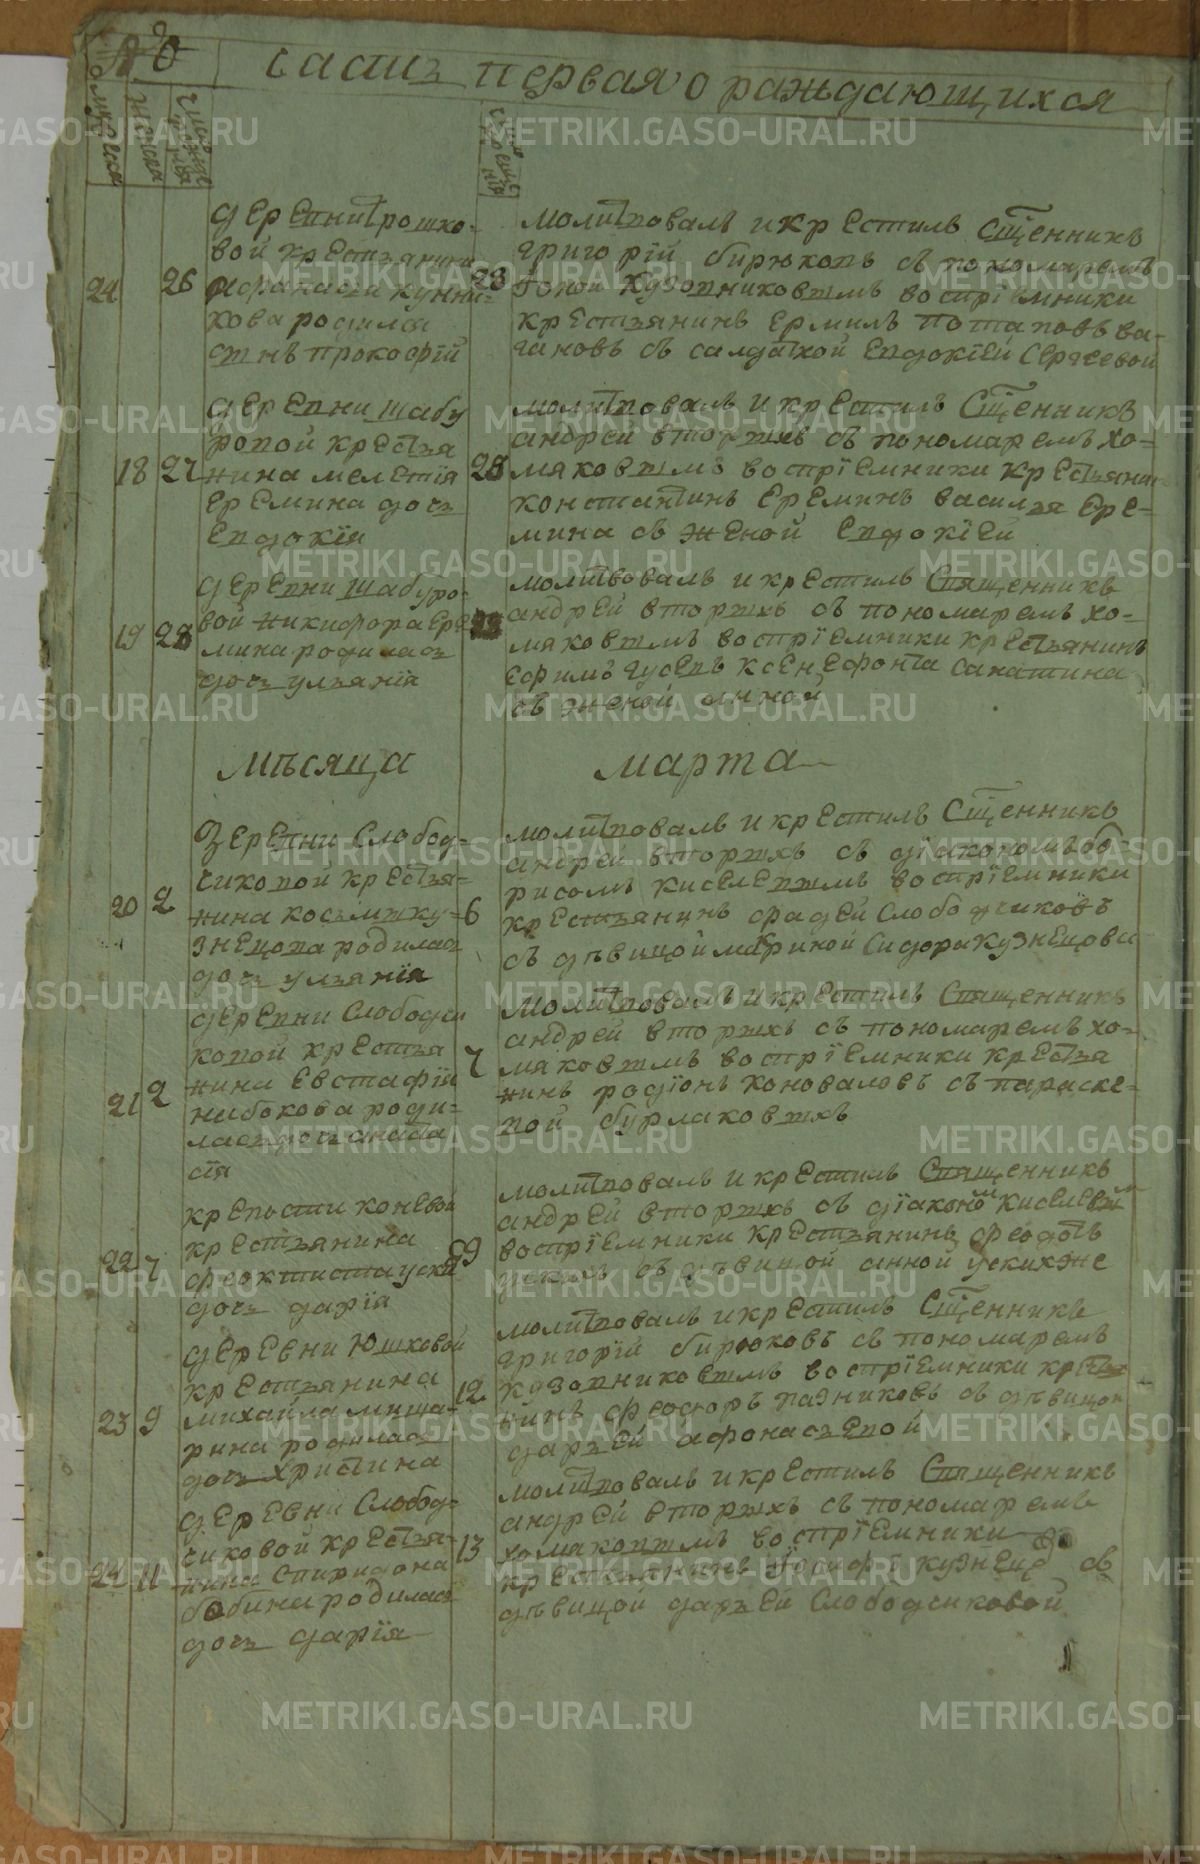 часть первая о раждающихся
деревни трошко-
вой крестьянина
24 26
кова родился
сынъ прокофій
28
молитвовалъ и крестилъ сщенникъ
григорій бирюковъ съ пономаремъ
кузовниковымъ воспріемники
крестьянинъ ермилъ потаповъ ва-
гановъ съ салдаткой евдокіей сергеевой
деревни шабу
ровой крестья
18 27 нина мелетія
еремина дочь
евдокія
молитвовалъ и крестилъ сщенникъ
андрей вторыхъ съ пономаремъ хо-
мяковымъ воспріемники крестьянин
константинъ ереминъ василья ере-
мина съ женой евдокіей
деревни шабуро-
19 28 вой никифора ере
мина родилась
дочь ульянія
молитвовалъ и крестилъ священникъ
андрей вторыхъ съ пономаремъ хо-
мяковымъ воспріемники крестьянинъ
ефимъ гусевъ ксенефонта
съ женой анной
мѣсяца марта
деревни Слобод-
чиковой крестья-
20 2 нина косьмы ку-
знецова родилась
дочь ульянія
6
молитвовалъ и крестилъ сщенникъ
андрей вторыхъ съ діакономъ бо-
рисомъ киселевымъ воспріемники
крестьянинъ фадей Слободчиковъ
съ дѣвицой макриной Сидора кузнецова
деревни Слободчи
ковой крестья
21 2 нина евстафія
набокова роди-
лась дочь анаста
сія
7
молитвовалъ и крестилъ священникъ
андрей вторыхъ съ пономаремъ хо-
мяковымъ воспріемники крестья
нинъ родіонъ коноваловъ съ параске-
вой бурлаковыхъ
крепости коневой
крестьянина
22 7 феоктиста ускихъ
дочь дарія
9
молитвовалъ и крестилъ священникъ
андрей вторыхъ съ діакономъ киселевым
воспріемники крестьянинъ феодотъ
ускихъ съ дѣвицой анной ускихже
деревни Юшковой
крестьянина
23 9 михайла миша-
рина родилась
дочь христина
12
молитвовалъ и крестилъ сщенникъ
григорій бирюковъ съ пономаремъ
кузовниковымъ воспріемники крестья
нинъ феодоръ пазниковъ съ дѣвицой
дарьей афонасьевой
деревни Слобод-
чиковой крестья-
24 11 нина спиридона
бабина родилась
дочь дарія
13
молитвовалъ и крестилъ священникъ
андрей вторыхъ съ пономаремъ
хомяковымъ воспріемники
крестьянинъ іосифъ кузнецо съ
дѣвицой дарьей Слободчиковой
METRIKI.GASO-URAL.RU